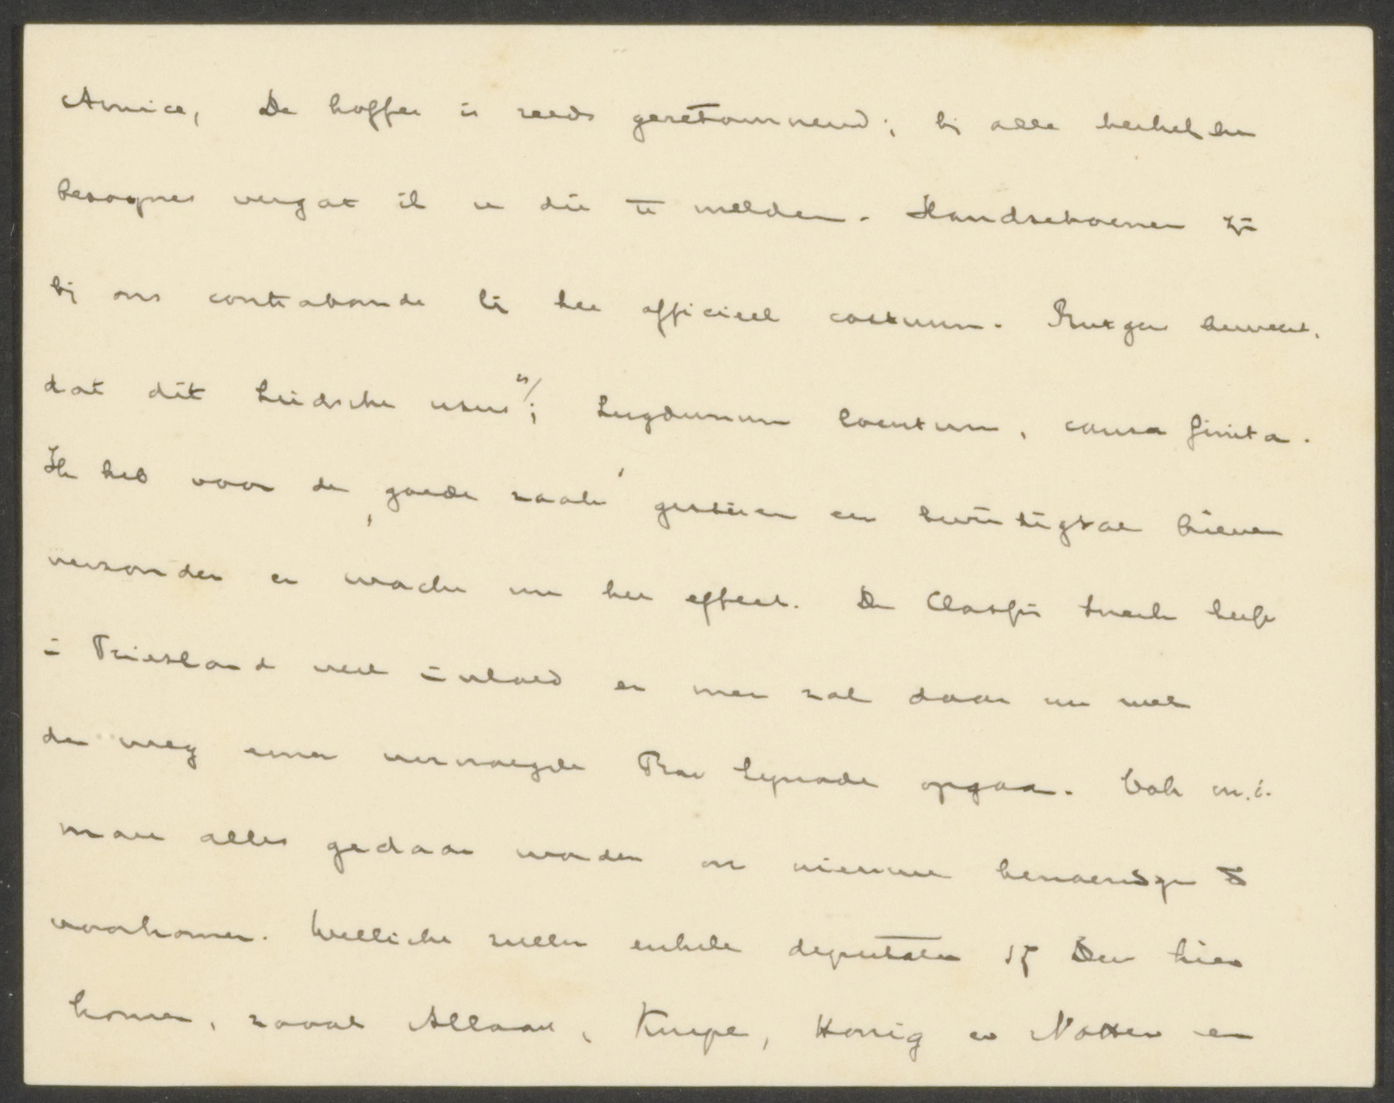 Amice, De koffer is reeds geretourneerd; bij alle
besognes vergat ik u dit te melden. Handschoenen zijn
bij ons contrabande bij het officieel costuum. Rutgers beweert,
dat dit Leidsche usus is; Lugdunum locutum, causa finita.
Ik heb voor de "goede zaak" gisteren een twintigtal brieven
verzonden en wacht nu het effect. De Classis Sneek heeft
in Friesland veel invloed en men zal daar nu wel
den weg eener vervroegde Prov Synode opgaan. Ook m.i.
moet alles gedaan worden om nieuwe benoeming te
voorkomen. Wellicht zullen enkele deputaten 15 Dec hier
komen, zooals Allaart, Knipe, Honig en Notten en